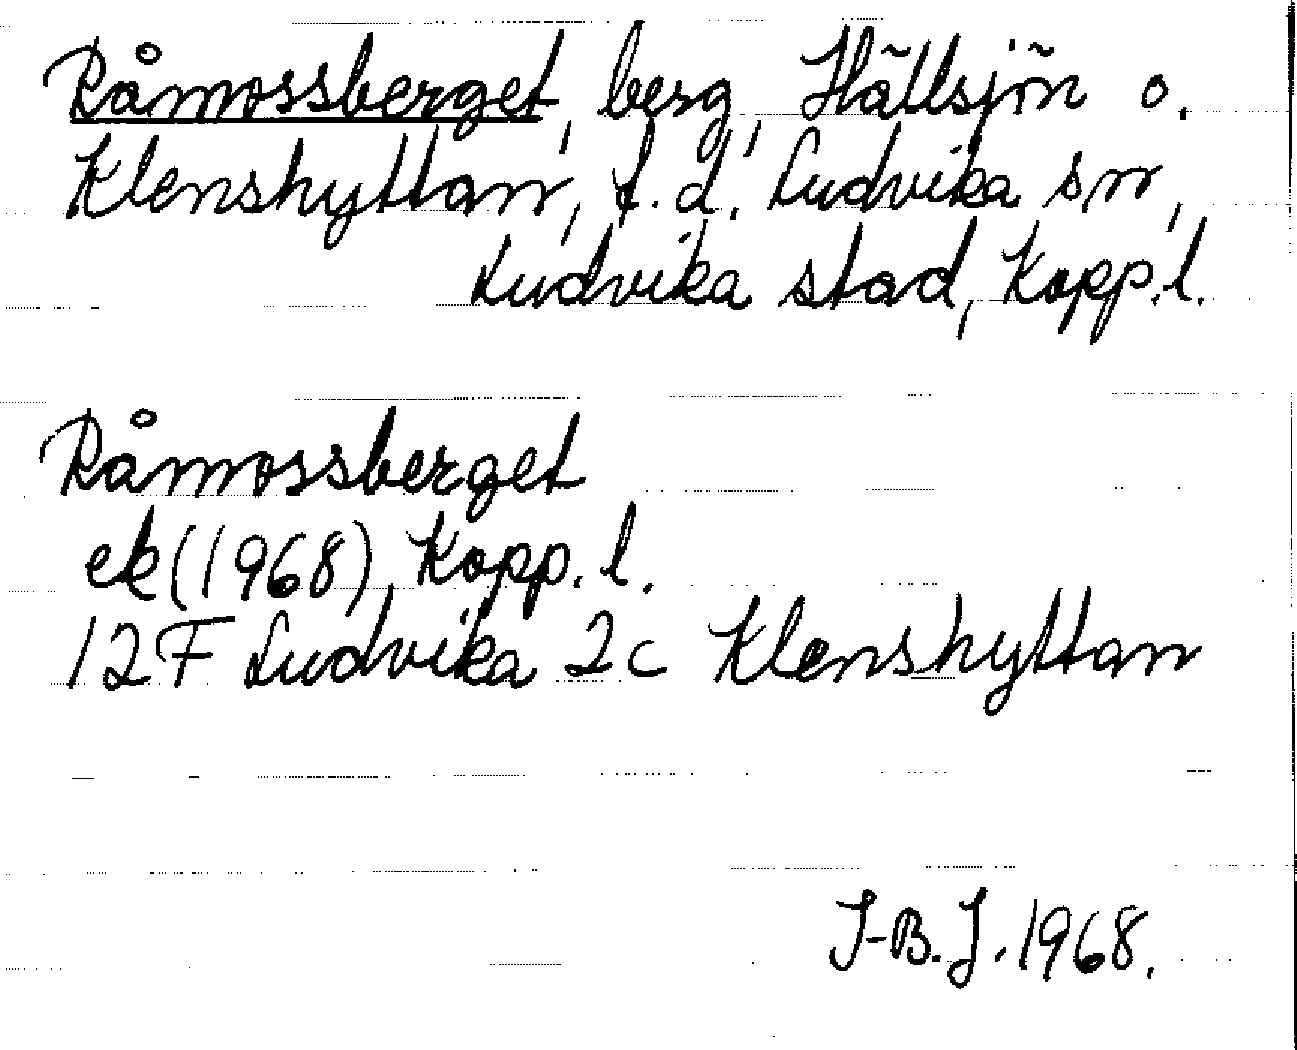 Råmossberget, berg, Hällsjön o.
Klenshyttan, f.d. Ludvika sn,
Ludvika stad, Kopp.l.
Råmossberget
ek (1968) Kopp.l.
12F Ludvika 2c Klenshyttan
I-B.J. 1968.